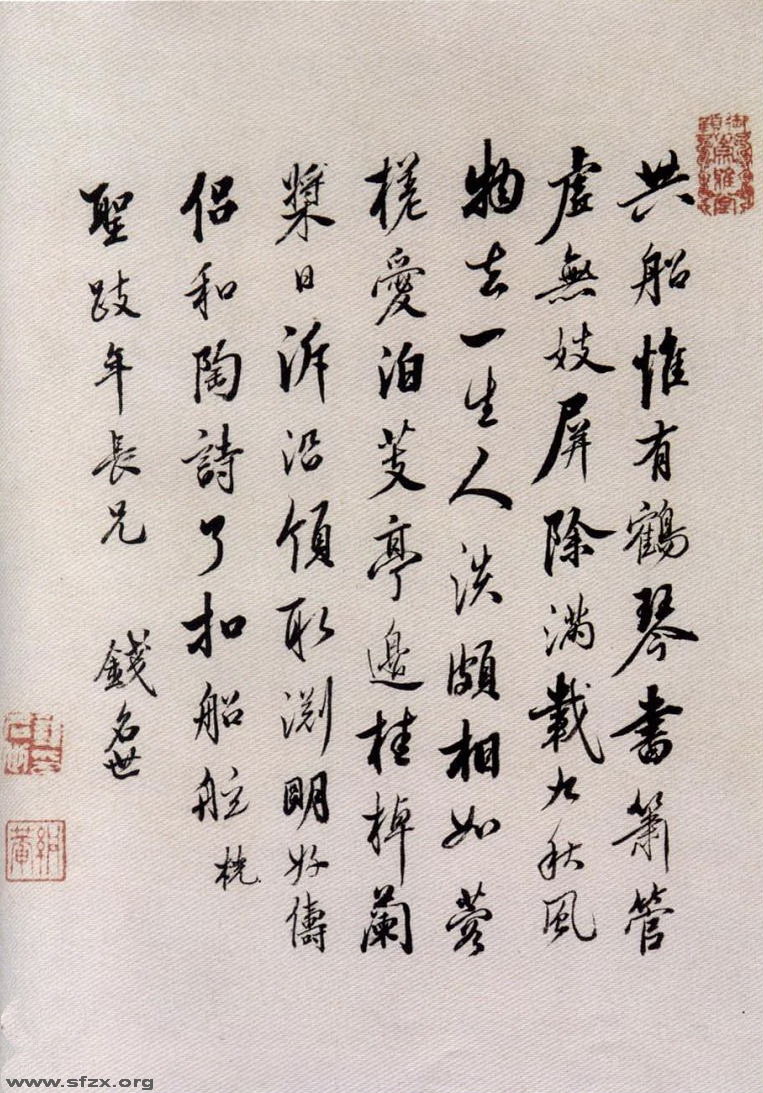 共船惟有鶴琴書簫管
虛無妓屏除滿載九秋風
物去一生人淡頗相如蓉
槎愛泊芰亭邊桂棹蘭
槳日泝沿領取淵明好儔
侶和陶詩了扣船舷
桄
聖跂年長兄
錢名世
www.sfzx.org